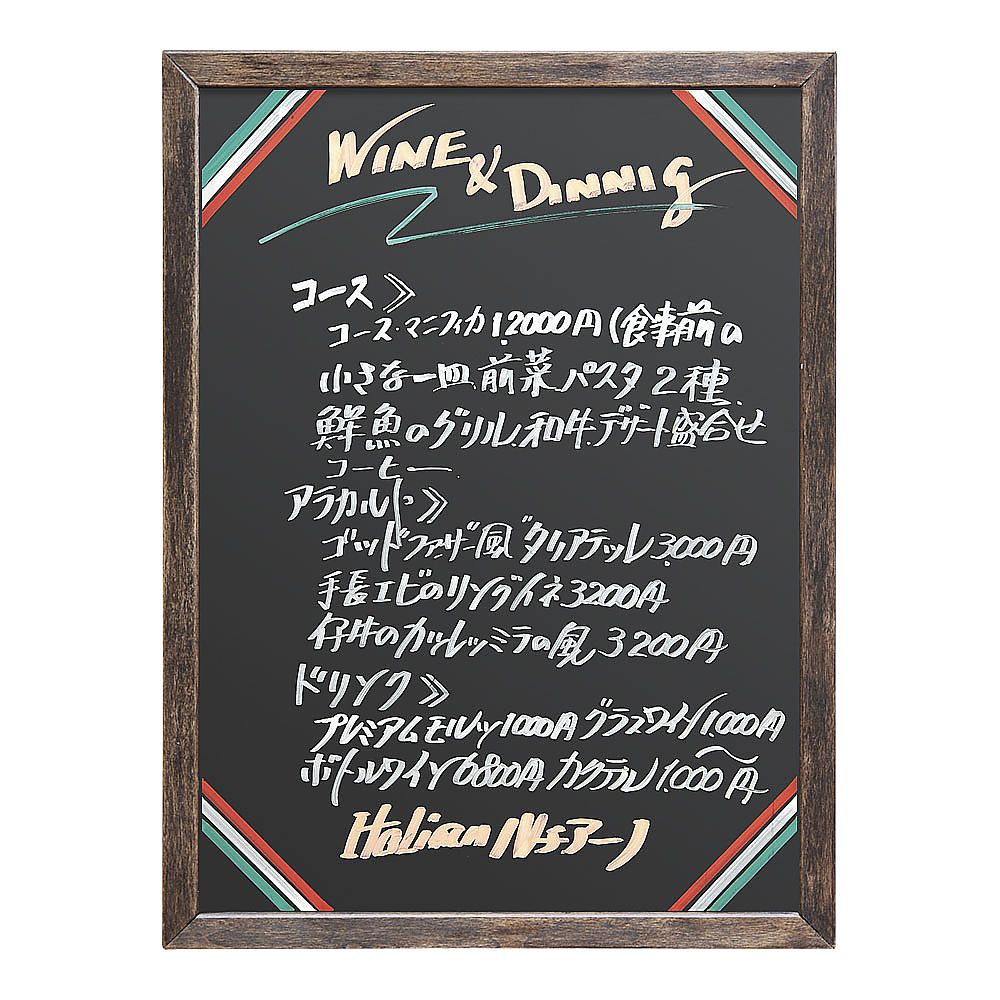 WINE & DINNIG
コース》
コース・マニフィカ 12000円 (食事前の
小さな一皿、前菜、パスタ2種、
鮮魚のグリル、和牛、デザート盛合せ
コーヒー
アラカルト》
ゴッドファザー風 タリアテッレ 3,000円
手長エビのリングイネ 3200円
仔牛のカツレツミラノ風 3200円
ドリンク》
プレミアムモルツ 1000円 グラスワイン 1.000円
ボトルワイン 6800円 カクテル 1.000円〜
Italian